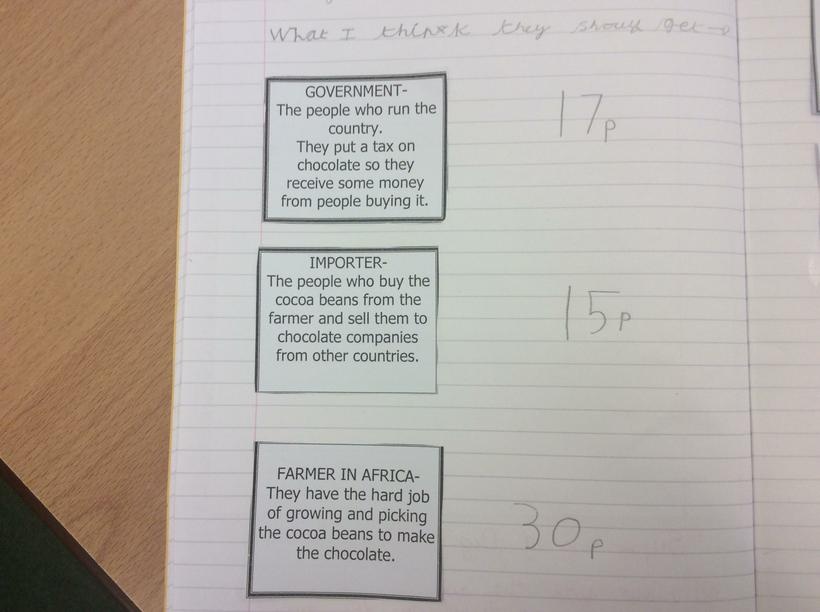 What I think they should get→
GOVERNMENT-
The people who run the
country.
They put a tax on
chocolate so they
receive some money
from people buying it.
17p
IMPORTER-
The people who buy the
cocoa beans from the
farmer and sell them to
chocolate companies
from other countries.
15p
FARMER IN AFRICA-
They have the hard job
of growing and picking
the cocoa beans to make
the chocolate.
30p